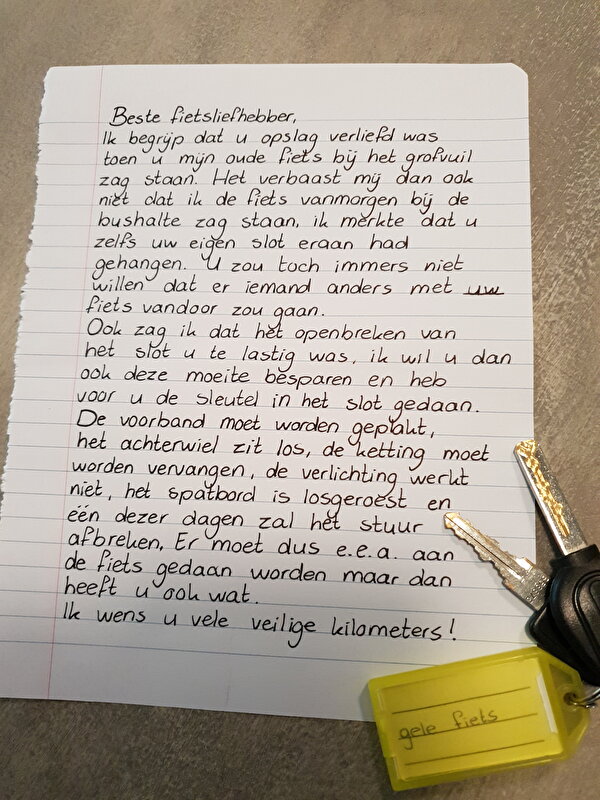 Beste fietsliefhebber,
Ik begrijp dat u opslag verliefd was
toen u mijn oude fiets bij het grofvuil
zag staan. Het verbaast mij dan ook
niet dat ik de fiets vanmorgen bij de
bushalte zag staan, ik merkte dat u
zelfs uw eigen slot eraan had
gehangen. U zou toch immers niet
willen dat er iemand anders met uw
fiets vandoor zou gaan.
Ook zag ik dat het openbreken van
het slot u te lastig was, ik wil u dan
ook deze moeite besparen en heb
voor u de sleutel in het slot gedaan.
De voorband moet worden geplakt,
het achterwiel zit los, de ketting moet
worden vervangen, de verlichting werkt
niet, het spatbord is losgeroest en
één dezer dagen zal het stuur
afbreken. Er moet dus e.e.a. aan
de fiets gedaan worden maar dan
heeft u ook wat.
Ik wens u vele veilige kilometers!
gele fiets